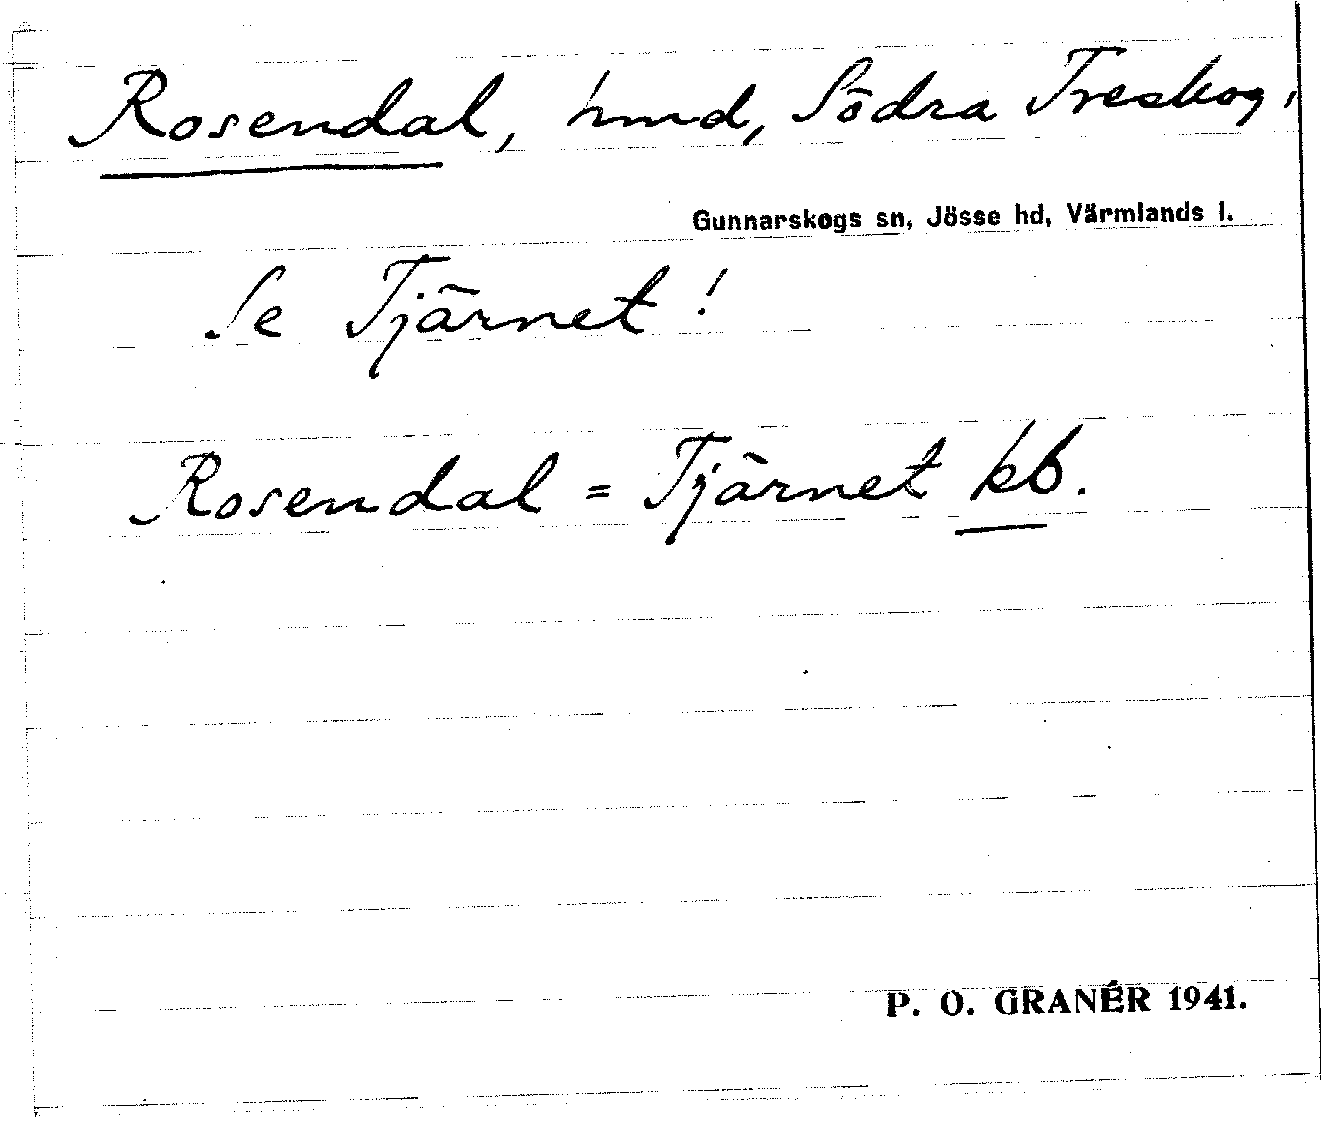 Rosendal, hmd, Södra Treskog,
Gunnarskogs sn, Jösse hd, Värmlands l.
Se Tjärnet!
Rosendal = Tjärnet kb.
P. O. GRANÉR 1941.